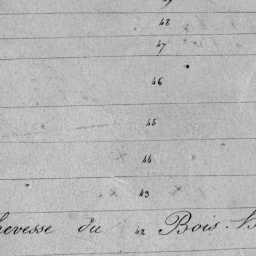 48
47
46
45
44
43
hevesse du 42 Bois